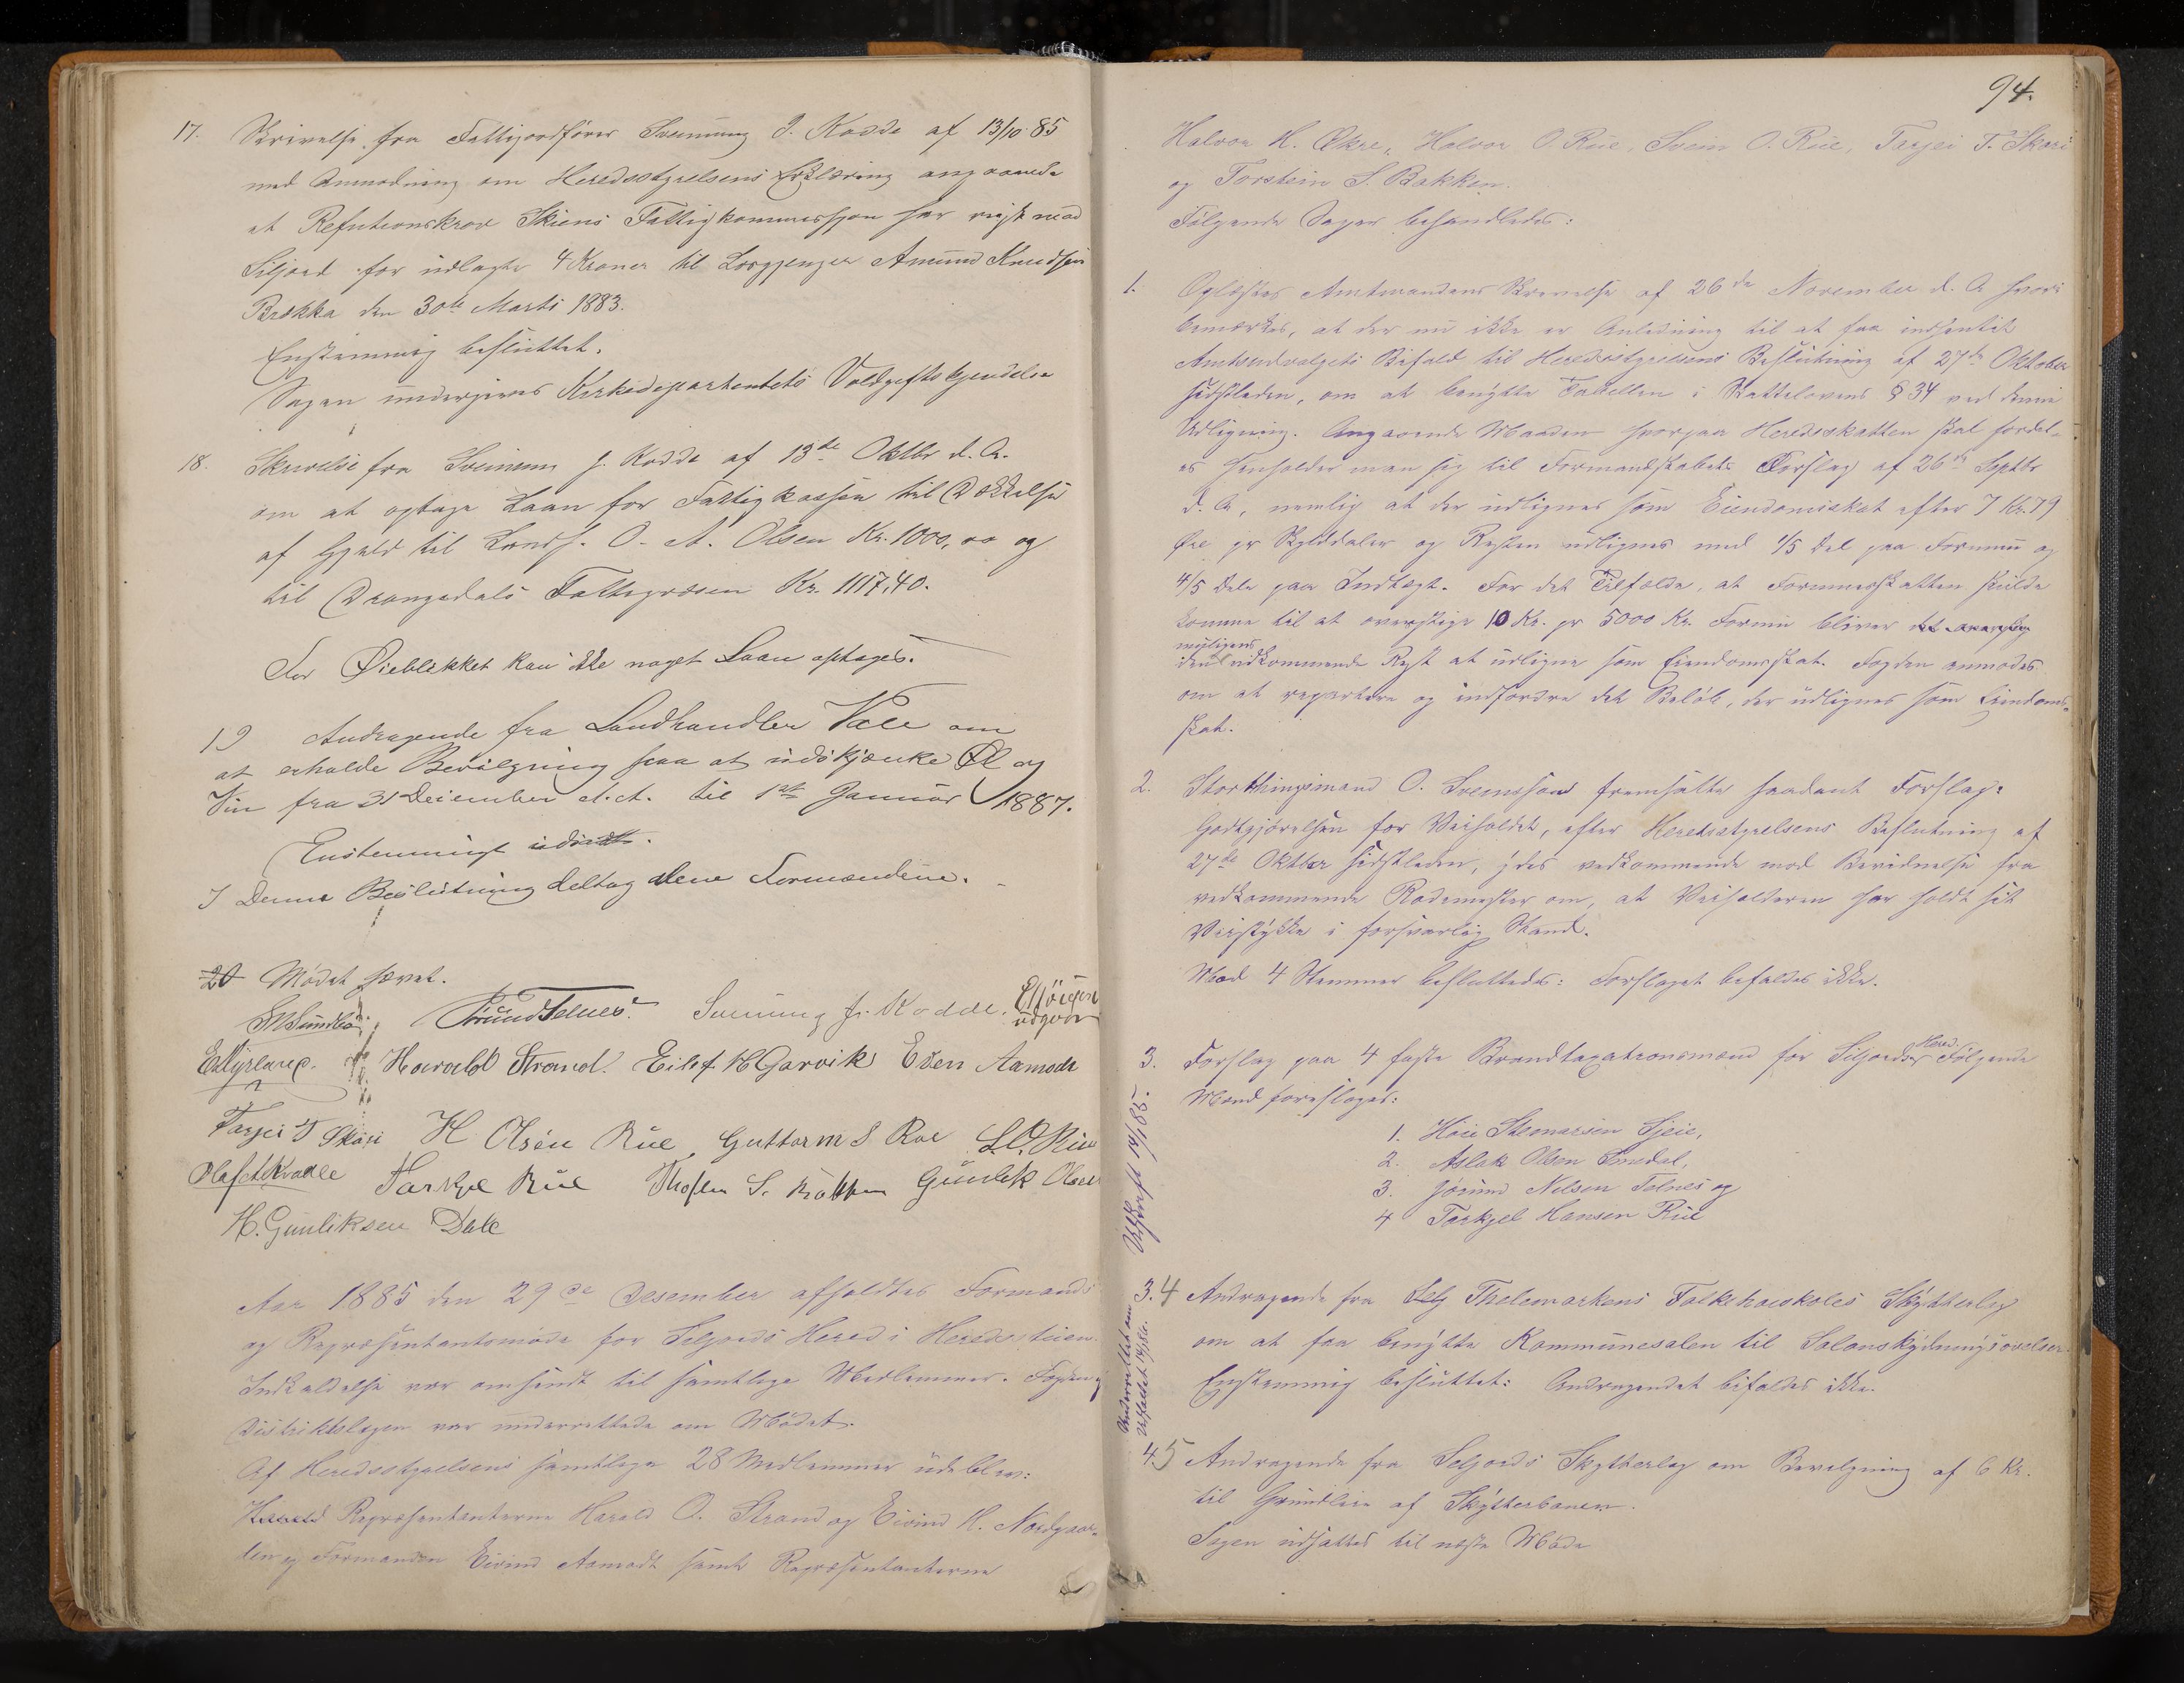 17. Skrivelse fra Fattigforstander Sveinung J. Rodde af 13/10 85
med Anmodning om Heredsstyrelsens Erklæring angaaende
et Refutionskrav Skiens Fattigkommission har reist mod
Siljord for udlagte 4 Kroner til Losgjenger Amund Knudsen
Brækka den 30te Marts 1883.
Enstemmig besluttet.
Sagen undergives Kirkedepartentets Voldgiftskjendelse
18. Skrivelse fra Sveinung J. Rodde af 13de Oktbr d. A.
om at optage Laan for Fattigkassen til Dækkelse
af Gjæld til Landh. O. A. Olsen Kr. 1000,00 og
til Drangedals Fattigvæsen Kr. 1117,40.
For Øieblikket kan ikke noget Laan optages.
19 Andragende fra Landhandler Vale om
at erholde Bevilgning paa at udskjænke Øl og
Vin fra 31 Desember d.A. til 1ste Januar 1887.
Enstemmigt udsat.
I Denne Beslutning deltog alene Formændene.
20 Mødet hævet.
SMSundbø Jørund Telnes Sveinung J. Rodde.
Harald Strand. Eilef H Garvik Even Aamodt
Tarjei T Skori H Olsen Rue Guttorm S Roe S.O. Rue
Olaf A Kvaale Tarkjel Rue Thosten S. Bakken Gunlek Olsen
H. Gunliksen Dale
Aar 1885 den 29de Desember afholdtes Formands
og Repræsentantsmøde for Seljords Hered i Heredsstuen.
Indkaldelse var omsendt til samtlige Medlemmer. Fogden og
Distriktslægen var underrettede om Mødet.
Af Heredsstyrelsens samtlige 28 Medlemmer udeblev:
Harald Repræsentanterne Harald O. Strand og Eivind H. Nordgaar-
den og Formanden Eivind Aamodt samt Repræsentanterne
94.
Halvor H. Økre, Halvor O. Rue, Svein O. Rue, Tarjei T. Skori
og Torstein S. Bakken.
Følgende Sager behandledes:
1. Oplæstes Amtmandens Skrivelse af 26de November d. A. hvori
bemærkes, at der nu ikke er Anledning til at faa indhentet
Amtsudvalgets Bifald til Heredsstyrelsens Beslutning af 27de Oktober
sidstleden, om at benytte Tabellen i Skattelovens § 34 ved denne
Udligning. Angaaende Maaden hvorpaa Heredsskatten skal fordel-
es henholder man sig til Formandskabets Forslag af 26de Septbr
d. A, nemlig at der udlignes som Eiendomsskat efter 7 Kr. 79
Øre pr Skylddaler og Resten udlignes med 1/5 Del paa Formue og
4/5 Dele paa Indtægt. For det Tilfælde, at Formuesskatten skulde
komme til at overstige 10 Kr. pr 5000 Kr. Formue bliver det
muligens
den udkommende Rest at udligne som Eiendomsskat. Fogden anmodes
om at repartere og indfordre det Beløb, der udlignes som Eiendoms-
skat.
2. Storthingsmand O. Sveinsson fremsatte saadant Forslag:
Godtgjørelsen for Veiholdet, efter Heredsstyrelsens Beslutning af
27de Oktber sidstleden, ydes vedkommende mod Bevidnelse fra
vedkommende Rodemester om, at Veiholderen har holdt sit
Veistykke i forsvarlig Stand.
Mod 4 Stemmer besluttedes: Forslaget bifaldes ikke.
3. Forslag paa 4 faste Brandtaxationsmænd for Siljords Hered. Følgende
Mænd foresloges:
1. Høie Steinarsen Ljeie,
2. Aslak Olsen Smedal,
3. Jørund Nilsen Telnes og
4 Tarkjel Hansen Rue
Udskrift 14/1 85.
3.4 Andragende fra Selj Thelemarkens Folkehøiskoles Skytterlag
om at faa benytte Kommunesalen til Salonskydningsøvelser.
Enstemmig besluttet: Andragendet bifaldes ikke.
Underrettet om
Udfaldet 14/1 86.
4.5 Andragende fra Seljords Skytterlag om Bevilgning af 6 Kr.
til Grundleie af Skytterbanen.
Sagen udsattes til næste Møde